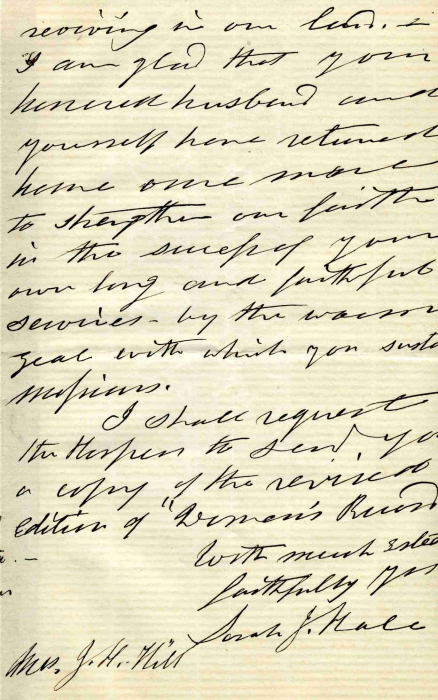 reviving in our land. -
I am glad that your
honored husband and
yourself have returned
home once more
to strengthen our faith
in the success of your
own long and faithful
services - by the warm
zeal with which you susta
missions.
I shall request
the Harpers to send, yo
a copy of the revised
edition of "Women's Record
With much Estee
faithfully You
Sarah J. Hale
Mrs. J. H. Hill